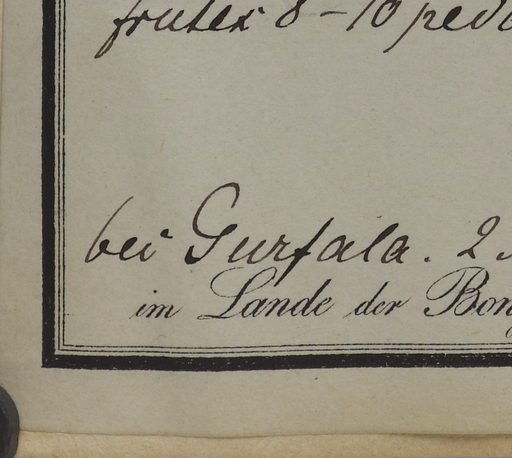 frutex 8-10 ped
bei Gurfala. 2
im Lande der Bon